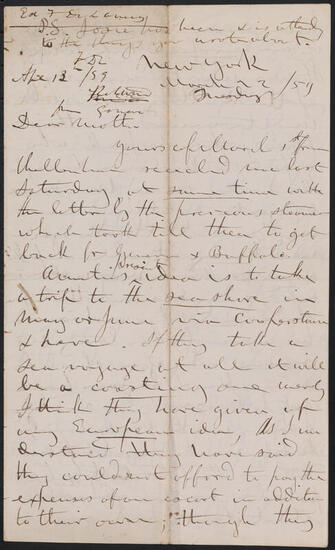 P.S. Josie has been & is attending
to the things you wrote about.
New York
March 22 / 59
Tuesday
Apr 12 / 59
Dear Mother
Yours of March 1st from
Cheltenham reached me last
Saturday at same time with
the letter by the previous steamer
which took till then to get
back fr & Buffalo.
Aunt's present idea is to take
a trip to the sea shore in
May or June via Cooperstown
& here. If they take a
sea voyage at all it will
be a coasting one merely
I think they have given up
any European idea, As I un
derstood they have said
they could not afford to pay the
expenses of an escort in addition
to their own; though they